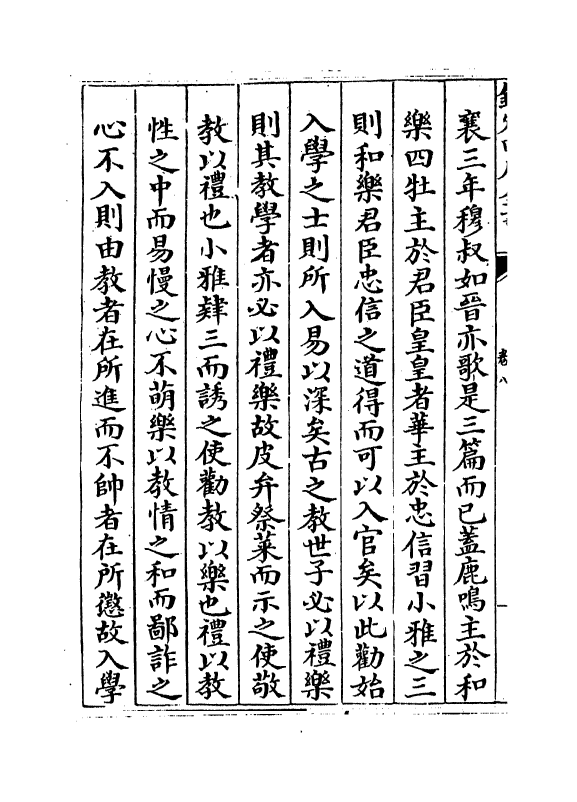 襄三年穆叔如晉亦歌是三篇而已蓋鹿鳴主於和
樂四牡主於君臣皇皇者華主於忠信習小雅之三
則和樂君臣忠信之道得而可以入官矣以此勸始
入學之士則所入易以深矣古之教世子必以禮樂
則其教學者亦必以禮樂故皮弁祭菜而示之使敬
教以禮也小雅肄三而誘之使勸教以樂也禮以教
性之中而易慢之心不萌樂以教情之和而鄙詐之
心不入則由教者在所進而不帥者在所懲故入學
卷八